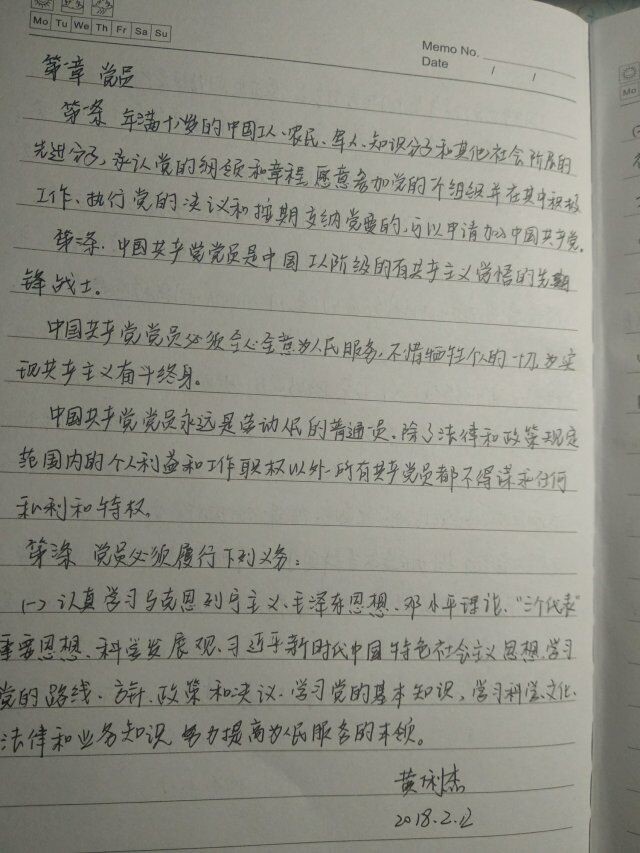 Mo Tu We Th Fr Sa Su
Memo No.
Date / /
Mo
第一章 党员
第一条 年满十八岁的中国工人、农民、军人、知识分子和其他社会阶层的
先进分子,承认党的纲领和章程,愿意参加党的一个组织并在其中积极
工作、执行党的决议和按期交纳党费的,可以申请加入中国共产党。
第二条 中国共产党党员是中国工人阶级的有共产主义觉悟的先
锋战士。
中国共产党党员必须全心全意为人民服务,不惜牺牲个人的一切,为实
现共产主义奋斗终身。
中国共产党党员永远是劳动人民的普通一员。除了法律和政策规定
范围内的个人利益和工作职权以外,所有共产党员都不得谋求任何
私利和特权。
第三条 党员必须履行下列义务:
(一)认真学习马克思列宁主义、毛泽东思想、邓小平理论、“三个代表”
重要思想、科学发展观、习近平新时代中国特色社会主义思想,学习
党的路线、方针、政策和决议,学习党的基本知识,学习科学、文化、
法律和业务知识,努力提高为人民服务的本领。
黄利杰
2018.2.12